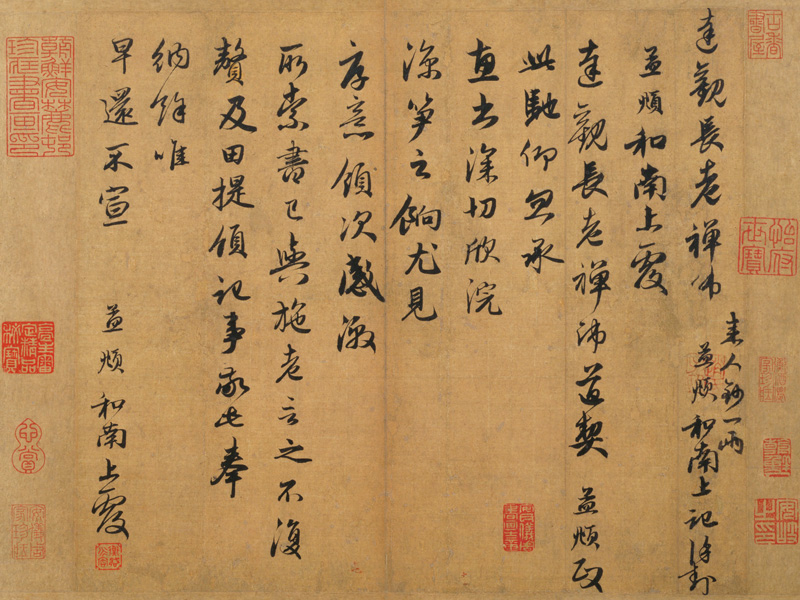 達觀長老禪師
來人鈔一兩
孟頫和南上記謹封
孟頫和南上覆
達觀長老禪師道契 孟頫政
此馳仰忽承
惠書深切欣浣
笋之餉尤見
厚意領次感激
所索書已與施老言之不復
贅及田提領記事敬此奉
納餘唯
早還不宣 孟頫和南上覆